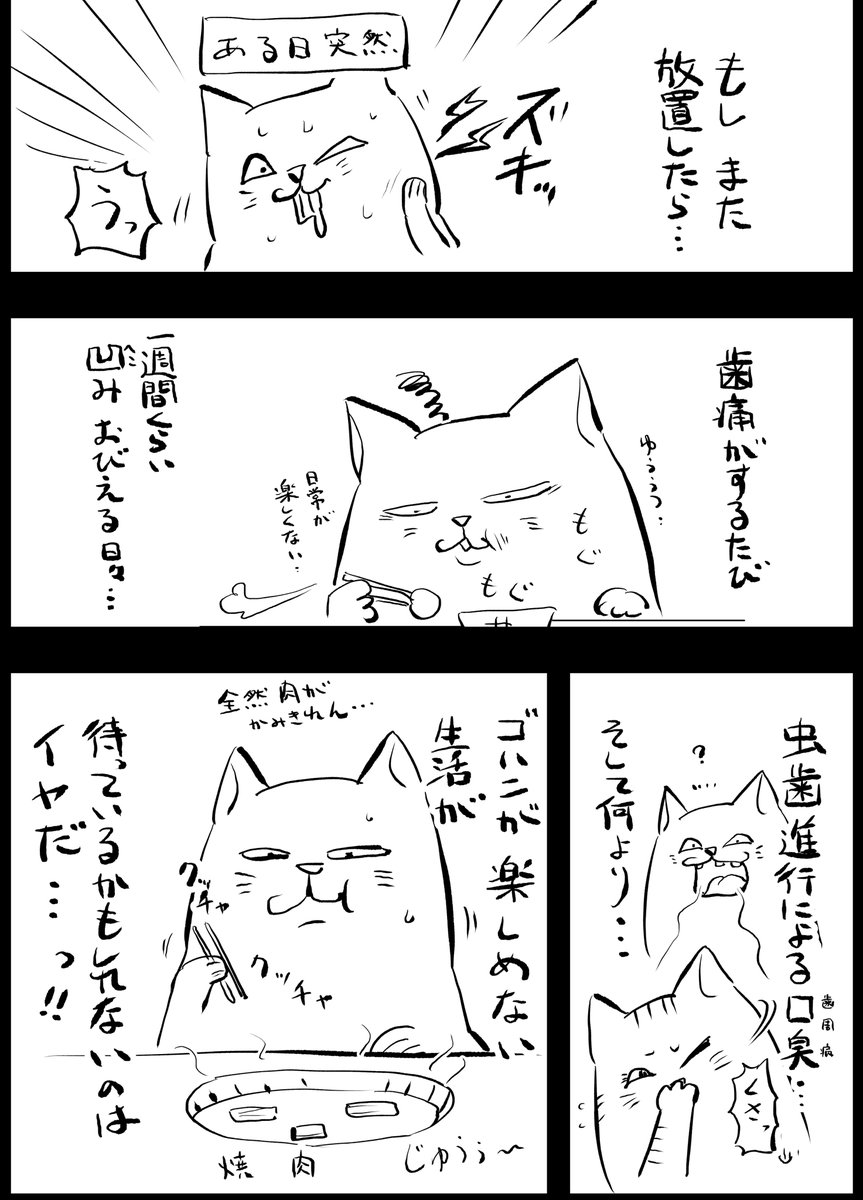 もし また
放置したら…
ある日突然
ズキッ
うっ
歯痛がするたび
ゆううつ…
もぐ
もぐ
日常が
楽しくない…
一週間くらい
凹み おびえる 日々…
へこ
虫歯進行による口臭…
歯周病
そして何より…
?
くさっ
ゴハンが 楽しめない
生活が
全然肉が
かみきれん…
クッチャ
クッチャ
待っているかもしれないのは
イヤだ…っ!!
焼肉
じゅうぅ〜